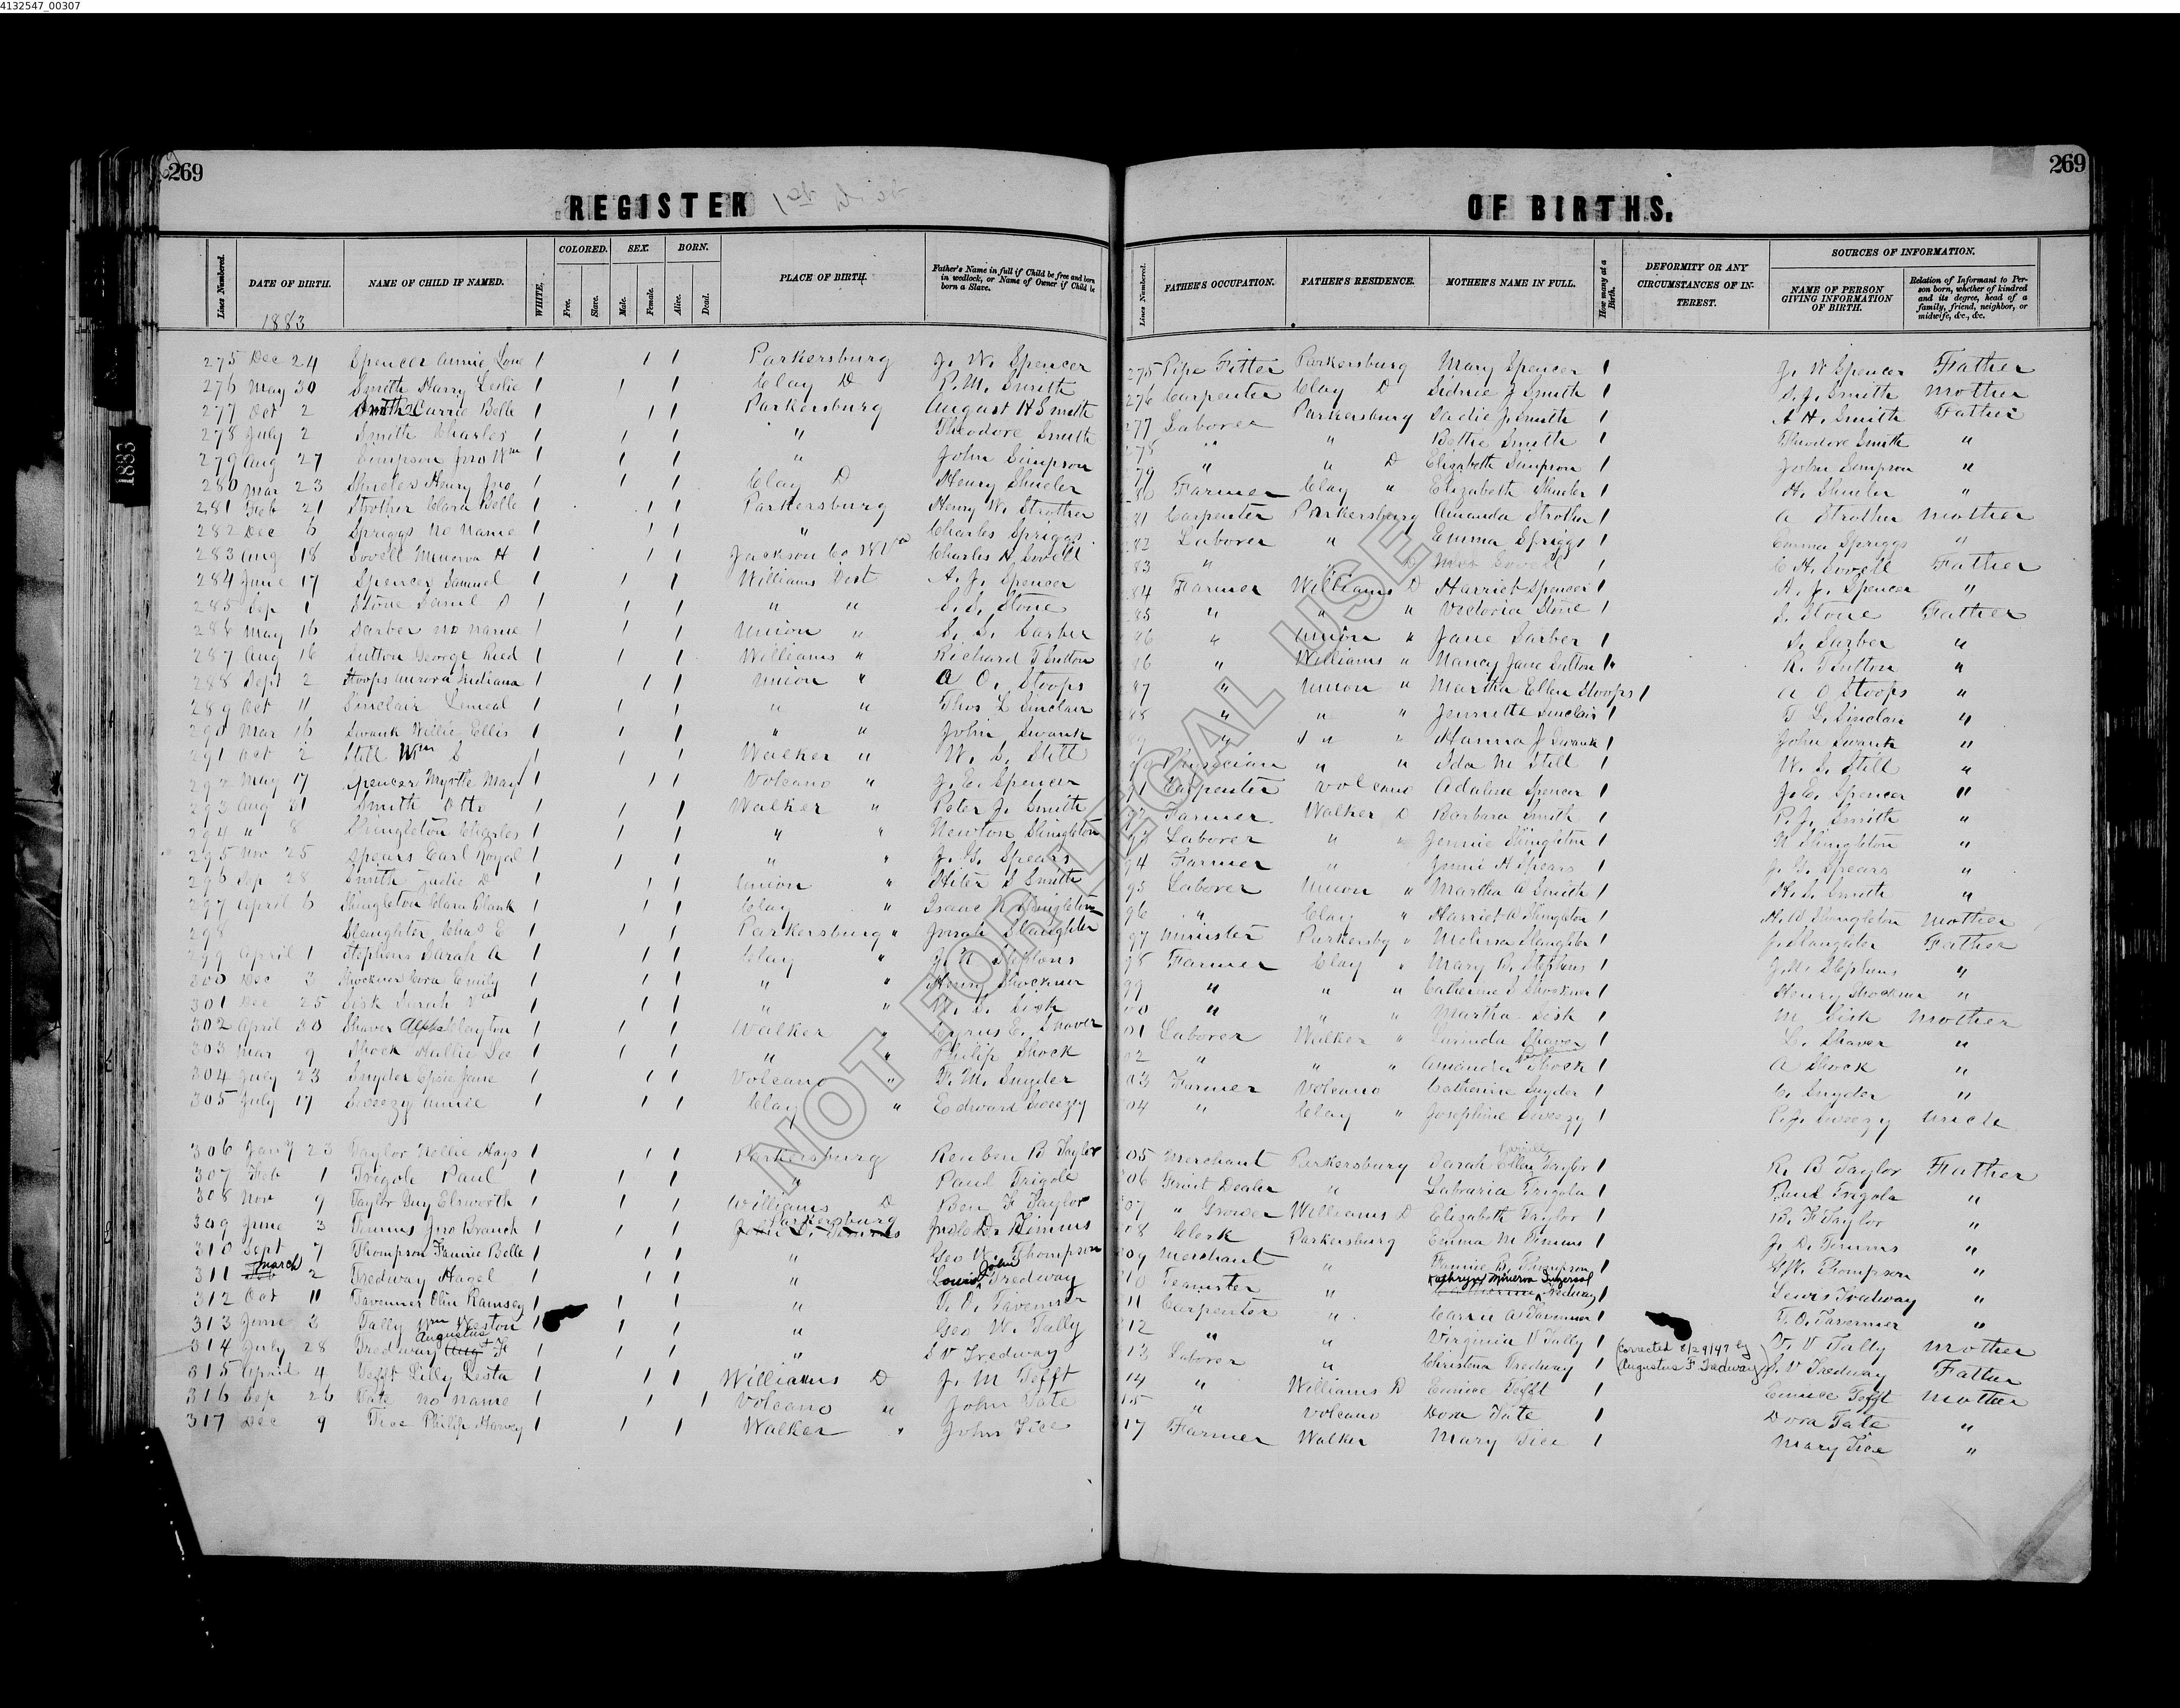 4132547_00307
269
269
REGISTER
OF BIRTHS.
Lines Numbered.
DATE OF BIRTH.
1883
NAME OF CHILD IF NAMED.
WHITE.
COLORED.
Free.
Slave.
SEX.
Male.
Female.
BORN.
Alive.
Dead.
PLACE OF BIRTH.
Father's Name in full if Child be free and born in wedlock, or Name of Owner if Child be born a Slave.
Lines Numbered.
FATHER'S OCCUPATION.
FATHER'S RESIDENCE.
MOTHER'S NAME IN FULL.
How many at a Birth.
DEFORMITY OR ANY CIRCUMSTANCES OF INTEREST.
SOURCES OF INFORMATION.
NAME OF PERSON GIVING INFORMATION OF BIRTH.
Relation of Informant to Person born, whether of kindred and its degree, head of a family, friend, neighbor, or midwife, &c., &c.
1883
275 Dec 24 Spencer Annie 1 1 1 Parkersburg J. W. Spencer 275 Pipe Fitter Parkersburg Mary Spencer 1 J. W Spencer Father
276 May 30 Smith Harry Leslie 1 1 1 Clay D P. M. Smith 276 Carpenter Clay D Sidnie J Smith 1 S. J. Smith Mother
277 Oct 2 Smith Carrie Belle 1 1 1 Parkersburg August H Smith 277 Laborer Parkersburg Sadie J. Smith 1 A H. Smith Father
278 July 2 Smith Charles 1 1 1 " Theodore Smith 278 " " Smith 1 Theodore Smith "
279 Aug 27 Simpson Jno Wm 1 1 1 " John Simpson 79 " " D Elizabeth Simpson 1 John Simpson "
280 Mar 23 Henry Jno 1 1 1 Clay D Henry Farmer Clay " Elizabeth 1 H. "
281 Feb 21 Strother Clara Belle 1 1 1 Parkersburg Henry W. Strother 81 Carpenter Parkersburg Amanda Strother 1 A Strother Mother
282 Dec 6 Spriggs No Name 1 1 1 " Charles Spriggs 82 Laborer " Emma Spriggs 1 Emma Spriggs "
283 Aug 18 Minerva H 1 1 1 Jackson Co W Va Charles H 83 " 1 C. H. Father
284 June 17 Spencer Samuel 1 1 1 Williams Dist A. J. Spencer 84 Farmer Williams D Harriet Spencer 1 A. J. Spencer "
285 Sep 1 Stone 1 1 1 " " S. S. Stone 85 " " " Victoria Stone 1 S. Stone Father
286 May 16 Sarber no name 1 1 1 Union " S. S. Sarber 86 " Union " Jane Sarber 1 S. Sarber "
287 Aug 16 Sutton George Ried 1 1 1 Williams " Richard T Sutton 86 " Williams " Nancy Jane Sutton 1 R. T Sutton "
288 Sept 2 Stoops Aurora Indiana 1 1 1 Union " A O. Stoops 87 " Union " Martha Ellen Stoops 1 A O Stoops "
289 Oct 11 Sinclair Lemeal 1 1 1 " " Thos L Sinclair 88 " " " Jennette Sinclair 1 T L. Sinclair "
290 Mar 16 Swank Willie Ellis 1 1 1 " " John Swank " " " Hanna J Swank 1 John Swank "
291 Oct 2 Still Wm S 1 1 1 Walker " W. S. Still Physician " " Ida M Still 1 W. S. Still "
292 May 17 Spencer Myrtle May 1 1 1 Volcano " J. E. Spencer 91 Carpenter Volcano Adaline Spencer 1 J. E. Spencer "
293 Aug 31 Smith Otto 1 1 1 Walker " Peter J. Smith Farmer Walker D Barbara Smith 1 P. J. Smith "
294 " 8 Shingleton Charles 1 1 1 " " Newton Shingleton 93 Laborer " " Jennie Shingleton 1 N Shingleton "
295 Nov 25 Spears Earl Royal 1 1 1 " " J. G. Spears 94 Farmer " Jennie H Spears 1 J. G. Spears "
296 Sep 28 Smith Zadie D 1 1 1 Union " Hiter S Smith 95 Laborer Union " Martha A Smith 1 H. S. Smith "
297 April 6 Shingleton Clara Blank 1 1 1 Clay " Isaac N Shingleton 96 " Clay " Harriet A Shingleton 1 H. A Shingleton Mother
298 Slaughter Chas E 1 1 1 Parkersburg " Josiah Slaughter 97 Minister Parkersbg " Melissa Slaughter 1 J. Slaughter Father
299 April 1 Stephens Sarah A 1 1 1 Clay " J. N Stephens 98 Farmer Clay " Mary B. Stephens 1 J. N. Stephens "
300 Dec 3 Cora Emily 1 1 1 " " Henry Shockner 99 " " " Catherine S Shockner 1 Henry Shockner "
301 Dec 25 Sisk Sarah 1 1 1 " " W. S. Sisk 00 " " " Martha Sisk 1 M Sisk Mother
302 April 30 Shaver Alpha Clayton 1 1 1 Walker " Cyrus E. Shaver 01 Laborer Walker " Shaver 1 Shaver "
303 Mar 9 Shock Lee 1 1 1 " " Philip Shock 02 " " " Amanda Shock 1 A Shock "
304 July 23 Snyder Jane 1 1 1 Volcano " F. M. Snyder 03 Farmer Volcano Catherine Snyder 1 C. Snyder "
305 July 17 Sweezy Minie 1 1 1 Clay " Edward Sweezy 04 " Clay " Josephine Sweezy 1 P. J. Sweezy Uncle
306 Jany 23 Taylor Nellie Hays 1 1 1 Parkersburg Reuben B Taylor 05 Merchant Parkersburg Sarah Ellen Taylor 1 R. B Taylor Father
307 Feb 1 Trigole Paul 1 1 1 " Paul Trigole 06 Fruit Dealer " Labraria Trigola 1 Paul Trigola "
308 Nov 9 Taylor Guy Elsworth 1 1 1 Williams D Ben F Taylor 07 " Grower Williams D Elizabeth Taylor 1 B. F Taylor "
309 June 3 Timms Jno Branch 1 1 1 John D. Timms Parkersburg Jno D. Timms 08 Clerk Parkersburg Emma M Timms 1 J. D. Timms "
310 Sept 7 Thompson Fannie Belle 1 1 1 " Geo W. Thompson 09 Merchant " Fannie B. Thompson 1 G. W. Thompson "
311 Feb March 2 Tredway Hagel 1 1 1 " Louis John Tredway 10 Teamster " Kathryn Minerva Ingersol Tredway 1 Lewis Tredway "
312 Oct 11 Tavenner Olin Ramsey 1 1 1 " T. O. Tavenner 11 Carpenter " Carrie A Tavenner 1 T. O. Tavenner "
313 June 3 Tally Wm Weston 1 1 1 " Geo W. Tally 12 " " Virginia V Tally 1 V. V Tally Mother
314 July 28 Tredway Aug Augustus F 1 1 1 " S V Tredway 13 Laborer " Christena Tredway 1 (Corrected 8/29/47 by Augustus F. Tredway) S. V Tredway Father
315 April 4 Tefft Lilly Lesta 1 1 1 Williams D J. M Tefft 14 " Williams D Eunice Tefft 1 Eunice Tefft Mother
316 Sep 26 Tate no name 1 1 1 Volcano " John Tate 15 " Volcano Dora Tate 1 Dora Tate "
317 Dec 9 Tice Philip Harvey 1 1 1 Walker " John Tice 17 Farmer Walker Mary Tice 1 Mary Tice "
NOT FOR LEGAL USE